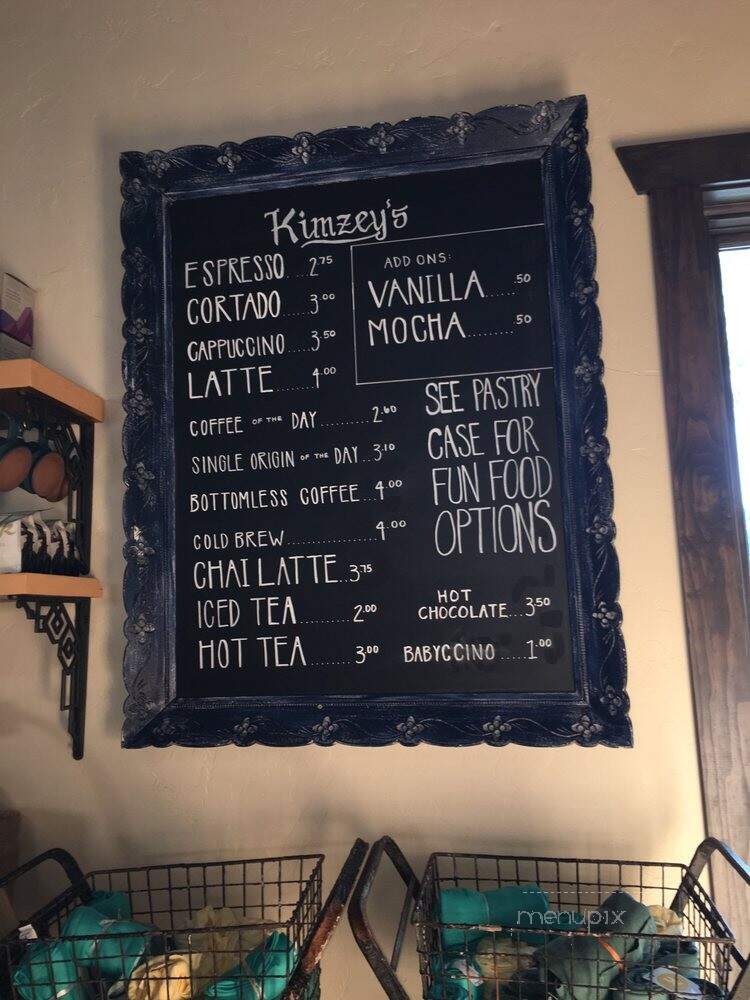 Kimzey's
ESPRESSO....2.75
CORTADO....3.00
CAPPUCCINO....3.50
LATTE.......4.00
COFFEE OF THE DAY.........2.60
SINGLE ORIGIN OF THE DAY..3.10
BOTTOMLESS COFFEE...4.00
COLD BREW...............4.00
CHAI LATTE..3.75
ICED TEA........2.00
HOT TEA.......3.00
ADD ONS:
VANILLA......50
MOCHA.........50
SEE PASTRY
CASE FOR
FUN FOOD
OPTIONS
HOT
CHOCOLATE...3.50
BABYCCINO.....1.00
menupix